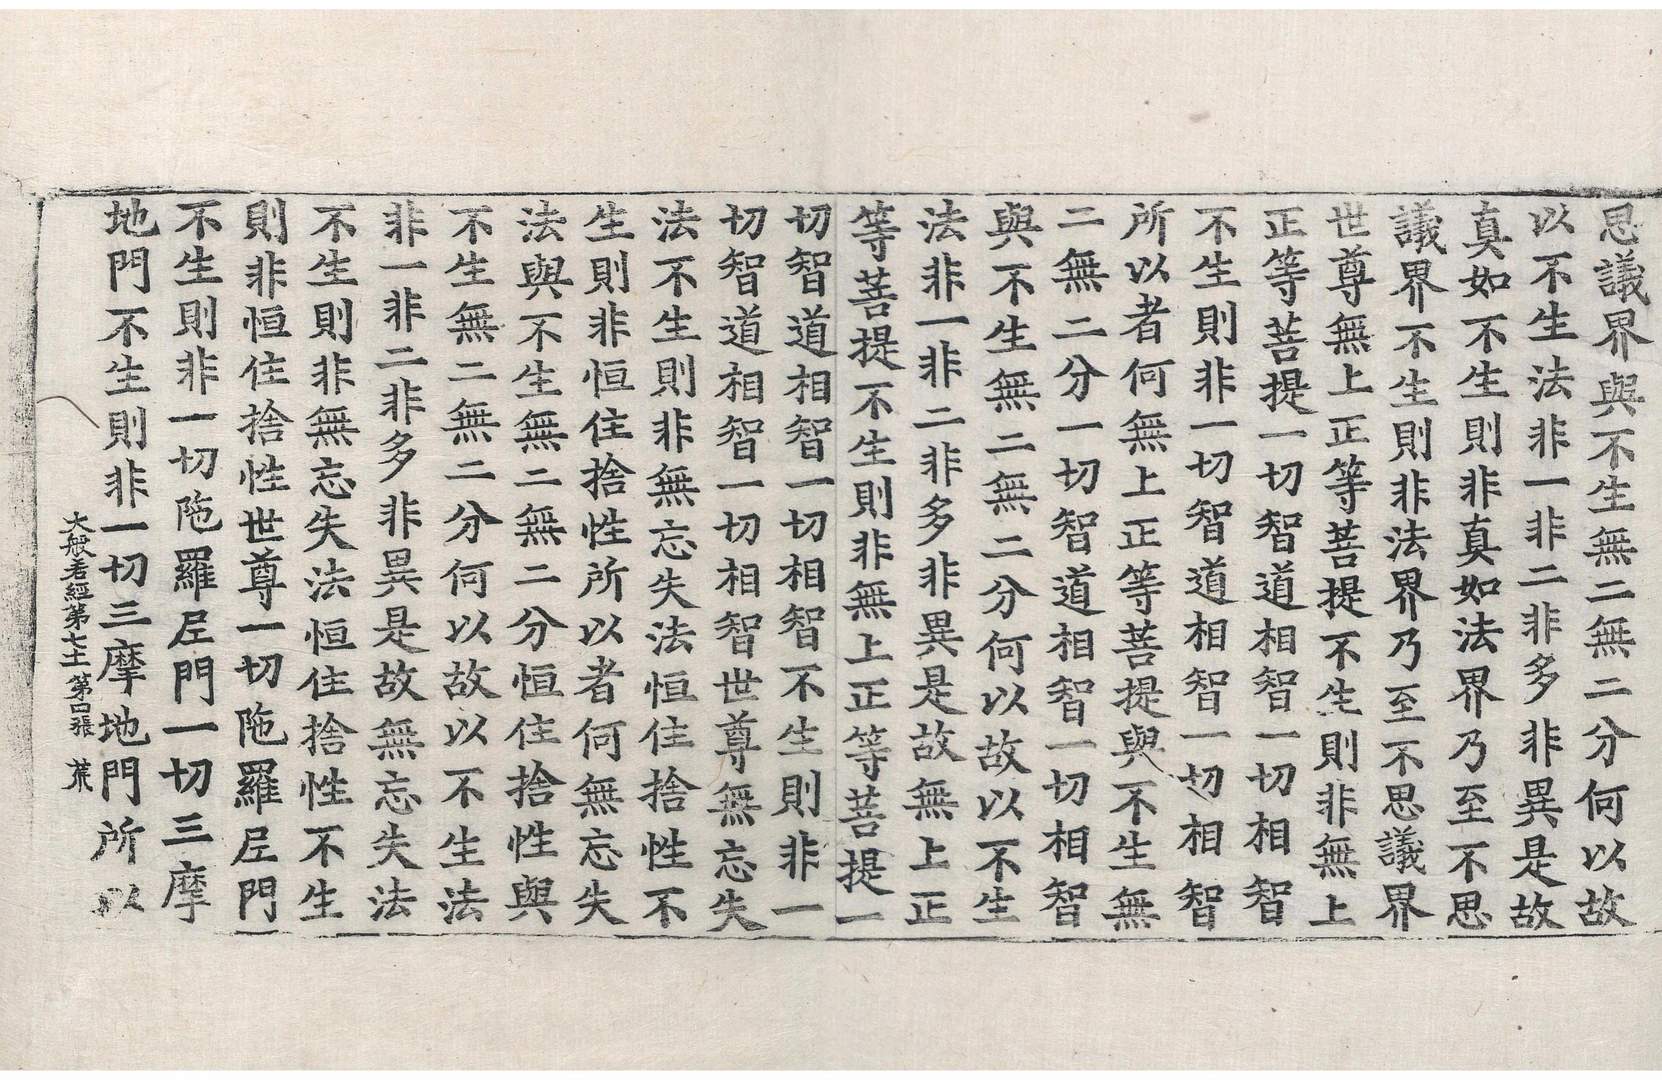 思議界與不生無二無二分何以故
以不生法非一非二非多非異是故
真如不生則非真如法界乃至不思
議界不生則非法界乃至不思議界
世尊無上正等菩提不生則非無上
正等菩提一切智道相智一切相智
不生則非一切智道相智一切相智
所以者何無上正等菩提與不生無
二無二分一切智道相智一切相智
與不生無二無二分何以故以不生
法非一非二非多非異是故無上正
等菩提不生則非無上正等菩提一
切智道相智一切相智不生則非一
切智道相智一切相智世尊無忘失
法不生則非無忘失法恒住捨性不
生則非恒住捨性所以者何無忘失
法與不生無二無二分恒住捨性與
不生無二無二分何以故以不生法
非一非二非多非異是故無忘失法
不生則非無忘失法恒住捨性不生
則非恒住捨性世尊一切陁羅尼門
不生則非一切陁羅尼門一切三摩
地門不生則非一切三摩地門所以
大般若經第七十 第 張 荒